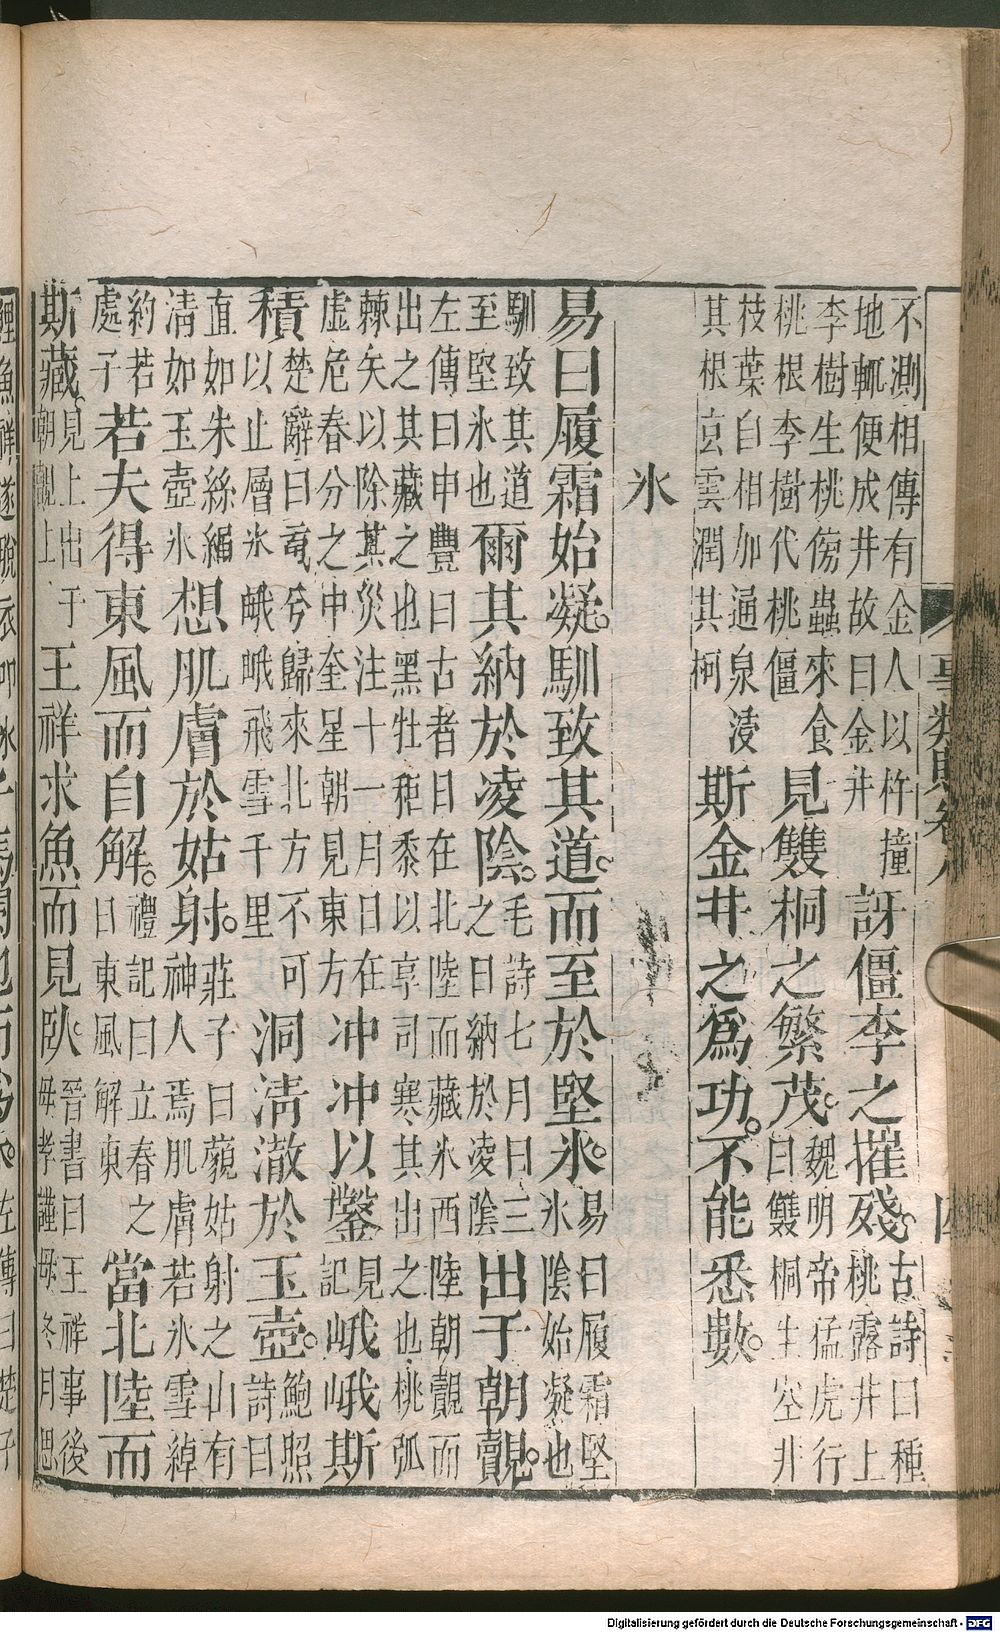 事類賦卷八
四
不測相傳有金人以杵撞地輒便成井故曰金井訝僵李之摧殘。古詩曰種桃露井上
李樹生桃傍蟲來食桃根李樹代桃僵見雙桐之繁茂。魏明帝猛虎行曰雙桐生空井
枝葉自相加通泉浸其根玄雲潤其柯斯金井之為功。不能悉數。
氷
易曰履霜始凝。馴致其道。而至於堅氷。易曰履霜堅氷陰始凝也
馴致其道至堅氷也爾其納於凌陰。毛詩七月曰三之日納於凌陰出于朝覿。
左傳曰申豐曰古者日在北陸而藏氷西陸朝覿而出之其藏之也黑牡秬黍以享司寒其出之也桃弧
棘矢以除其災注十一月日在虛危春分之中奎星朝見東方冲冲以鑿見記峨峨斯
積楚辭曰䰟兮歸來北方不可以止層氷峨峨飛雪千里洞清澈於玉壺。鮑照詩曰
直如朱絲繩清如玉壺氷想肌膚於姑射。莊子曰藐姑射之山有神人焉肌膚若氷雪綽
約若處子若夫得東風而自解。禮記曰立春之日東風解東當北陸而
斯藏。見上出于朝覿上王祥求魚而見臥。晉書曰王祥事後母孝謹母冬月思
鯉魚祥遂脫衣叩氷左傳曰楚子
Digitalisierung gefördert durch die Deutsche Forschungsgemeinschaft - DFG